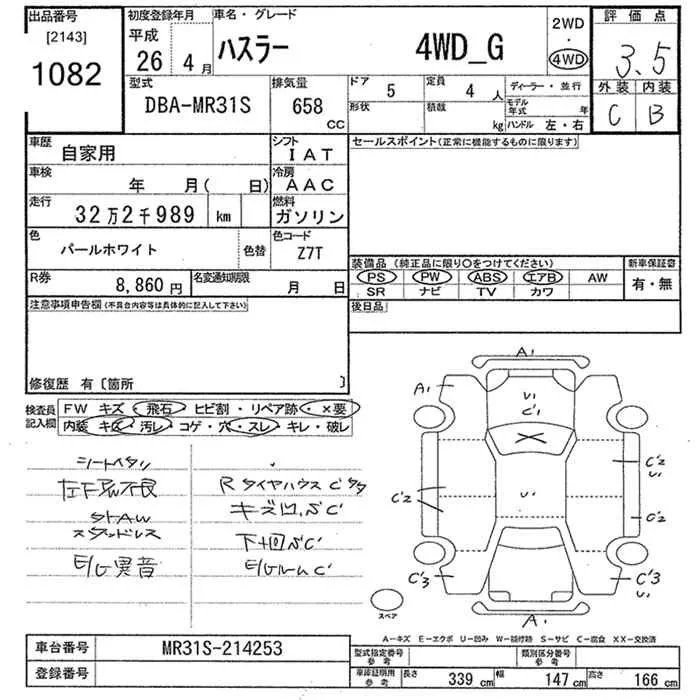 出品番号 初度登録年月 車名・グレード 評価点
[2143] 平成 2WD
1082 26 4月 ハスラー 4WD_G ・ 3.5
4WD
外装 内装
C B
型式 排気量 ドア 5 定員 4人 ディーラー・並行
DBA-MR31S 658 CC 形状 積載 kg モデル年式 年
ハンドル 左・右
車歴 自家用 シフト IAT セールスポイント(正常に機能するものに限ります)
車検 年 月( 日) 冷房 AAC
走行 32万2千989 km 燃料 ガソリン
色 パールホワイト 色替 色コード Z7T
装備品 (純正品に限り○をつけてください) 新車保証書
R券 8,860円 名変通知期限 月 日 PS PW ABS エアB AW 有・無
SR ナビ TV カワ
注意事項申告欄 (不具合内容等は具体的に記入して下さい) 後日品
修復歴 有 〔箇所 〕
検査員記入欄 FW キズ・飛石・ヒビ割・リペア跡・×要
内装 キズ・汚レ・コゲ・穴・スレ・キレ・破レ
シートヘタリ
R タイヤハウス C'
スタッドレス
下回サビC'
E/G異音 E/GルームC'
A1
A1
U1
C'1
C'2
U1
C'2
U1
C'2
C'3
C'3
U1
スペア
A-キズ E-エクボ U-凹み W-補修跡 S-サビ C-腐食 XX-交換済
車台番号 MR31S-214253 型式指定番号 参考 類別区分番号 参考
登録番号 車庫証明用 参考 長さ 339 cm 幅 147 cm 高さ 166 cm